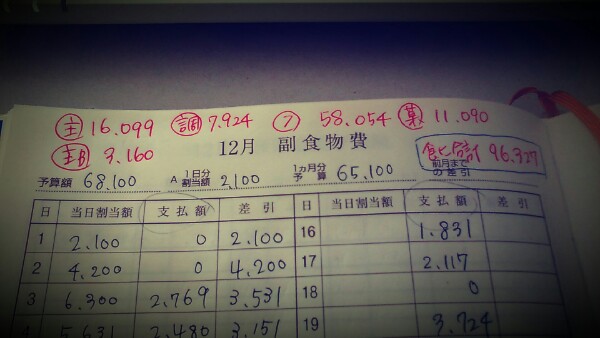 主 16.099 調 7.924 フ 58.054 菓 11.090
主B 3.160 12月 副食物費 食ヒ合計 96.327
予算額 68,100 A 1日分割当額 2,100 1ヵ月分予算 65,100 前月までの差引
日 当日割当額 支払額 差引 日 当日割当額 支払額 差引
1 2.100 0 2.100 16 1.831
2 4.200 0 4.200 17 2.117
3 6.300 2.769 3.531 18 0
4 5.631 2.480 3.151 19 3.724